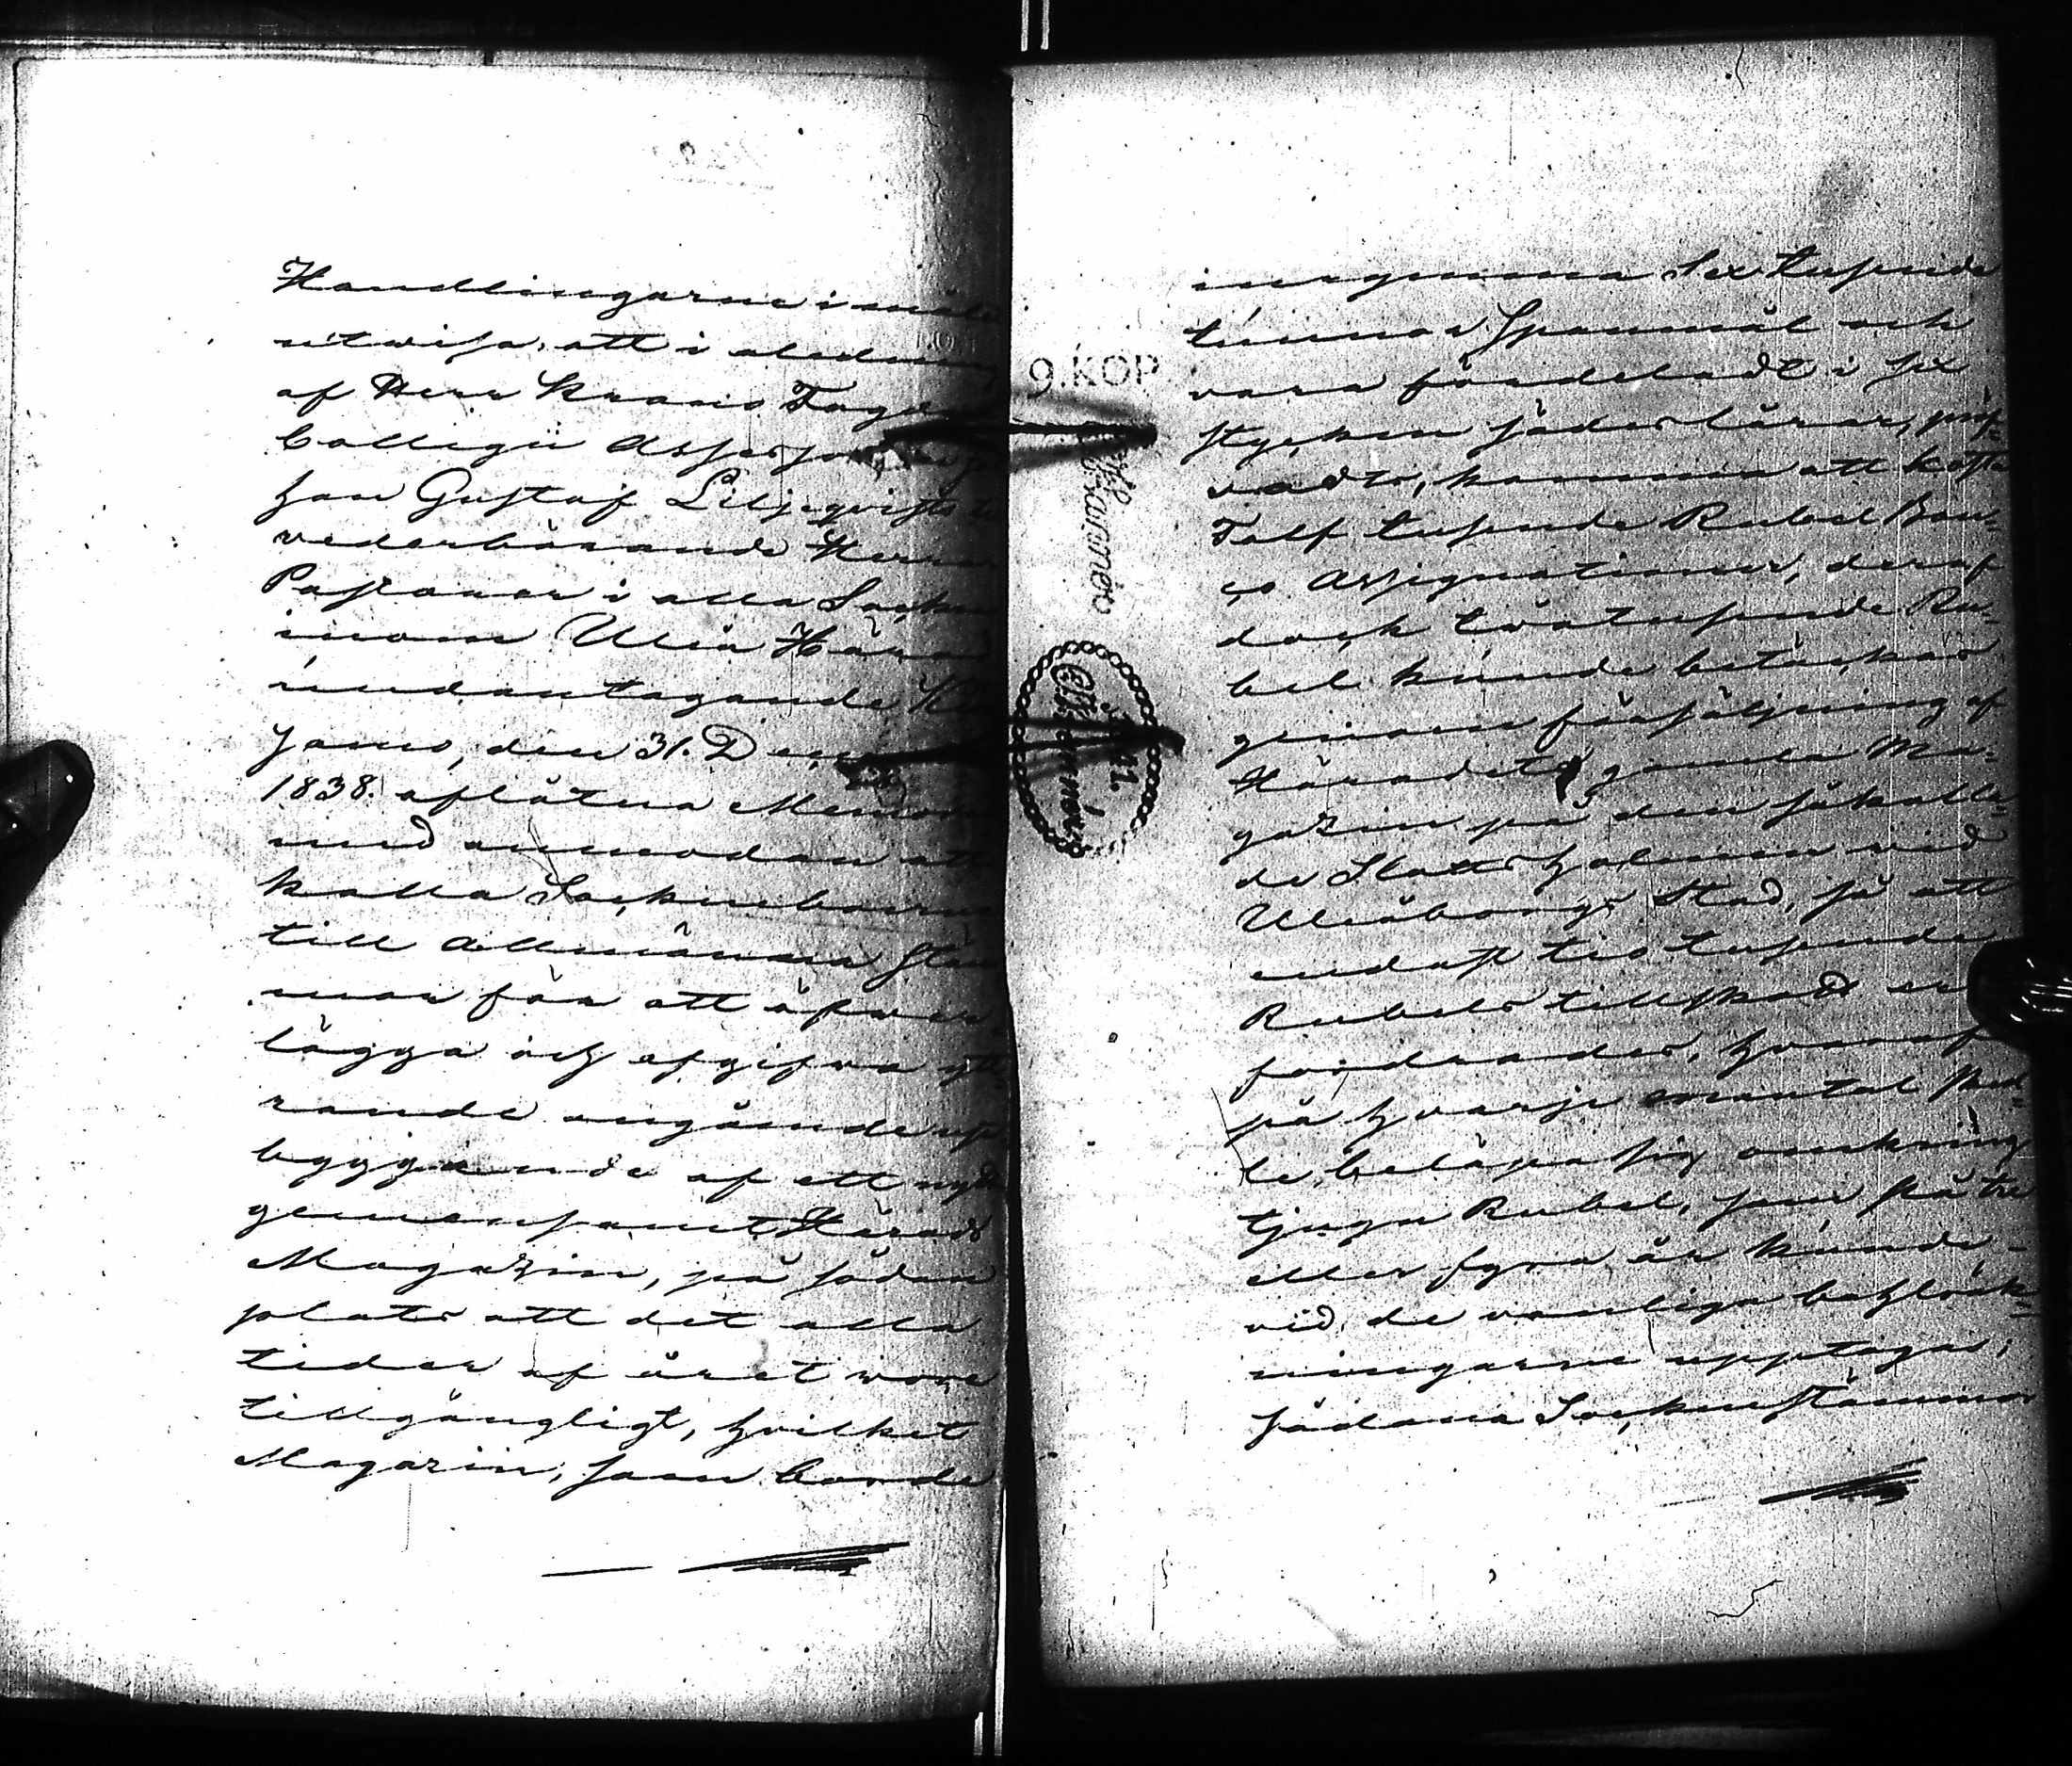 Handlingarne i
utwisa, att i aledning
af Herr Krono Fogden
Collegii Assessor
han Gustaf Liljeqvists
vederbörande Herrar
Pastorer i alla Socknar
inom Uleå Härad
undantagande
jamo, den 31. December
1838. aflåtna
med anmodan att
kalla Sockneboerne
till allmänna Stäm
mor för att öfver
lägga och afgifva ytt
rande angående up
byggande af ett nytt
gemensamt Härads
Magazin, på sådan
plats att det alla
tider af året wore
tillgängligt, hvilket
Magazin, som borde
inrymma Sex tusende
tunnor Spannmål och
vara fördeladt i sex
stycken sädeslårar, pröf-
vadts, komma att kosta
Tolf tusende Rubel Ban-
co Assignationer, deraf
dock tvåtusende Ru-
bel kunde betäckas
genom försäljning af
Häradets gamla Ma-
gazin på den såkalla-
de Slottsholmen vid
Uleåborgs Stad, så att
endast tio tusende
Rubels tillskott er
fordrades, hvaraf
på hvarje mantal skul-
le belöpa sig omkring
tjugu Rubel, som på tre
eller fyra år kunde
vid de vanliga
ningarne upptagas;
sådana Sockne stämmor
9. KOP